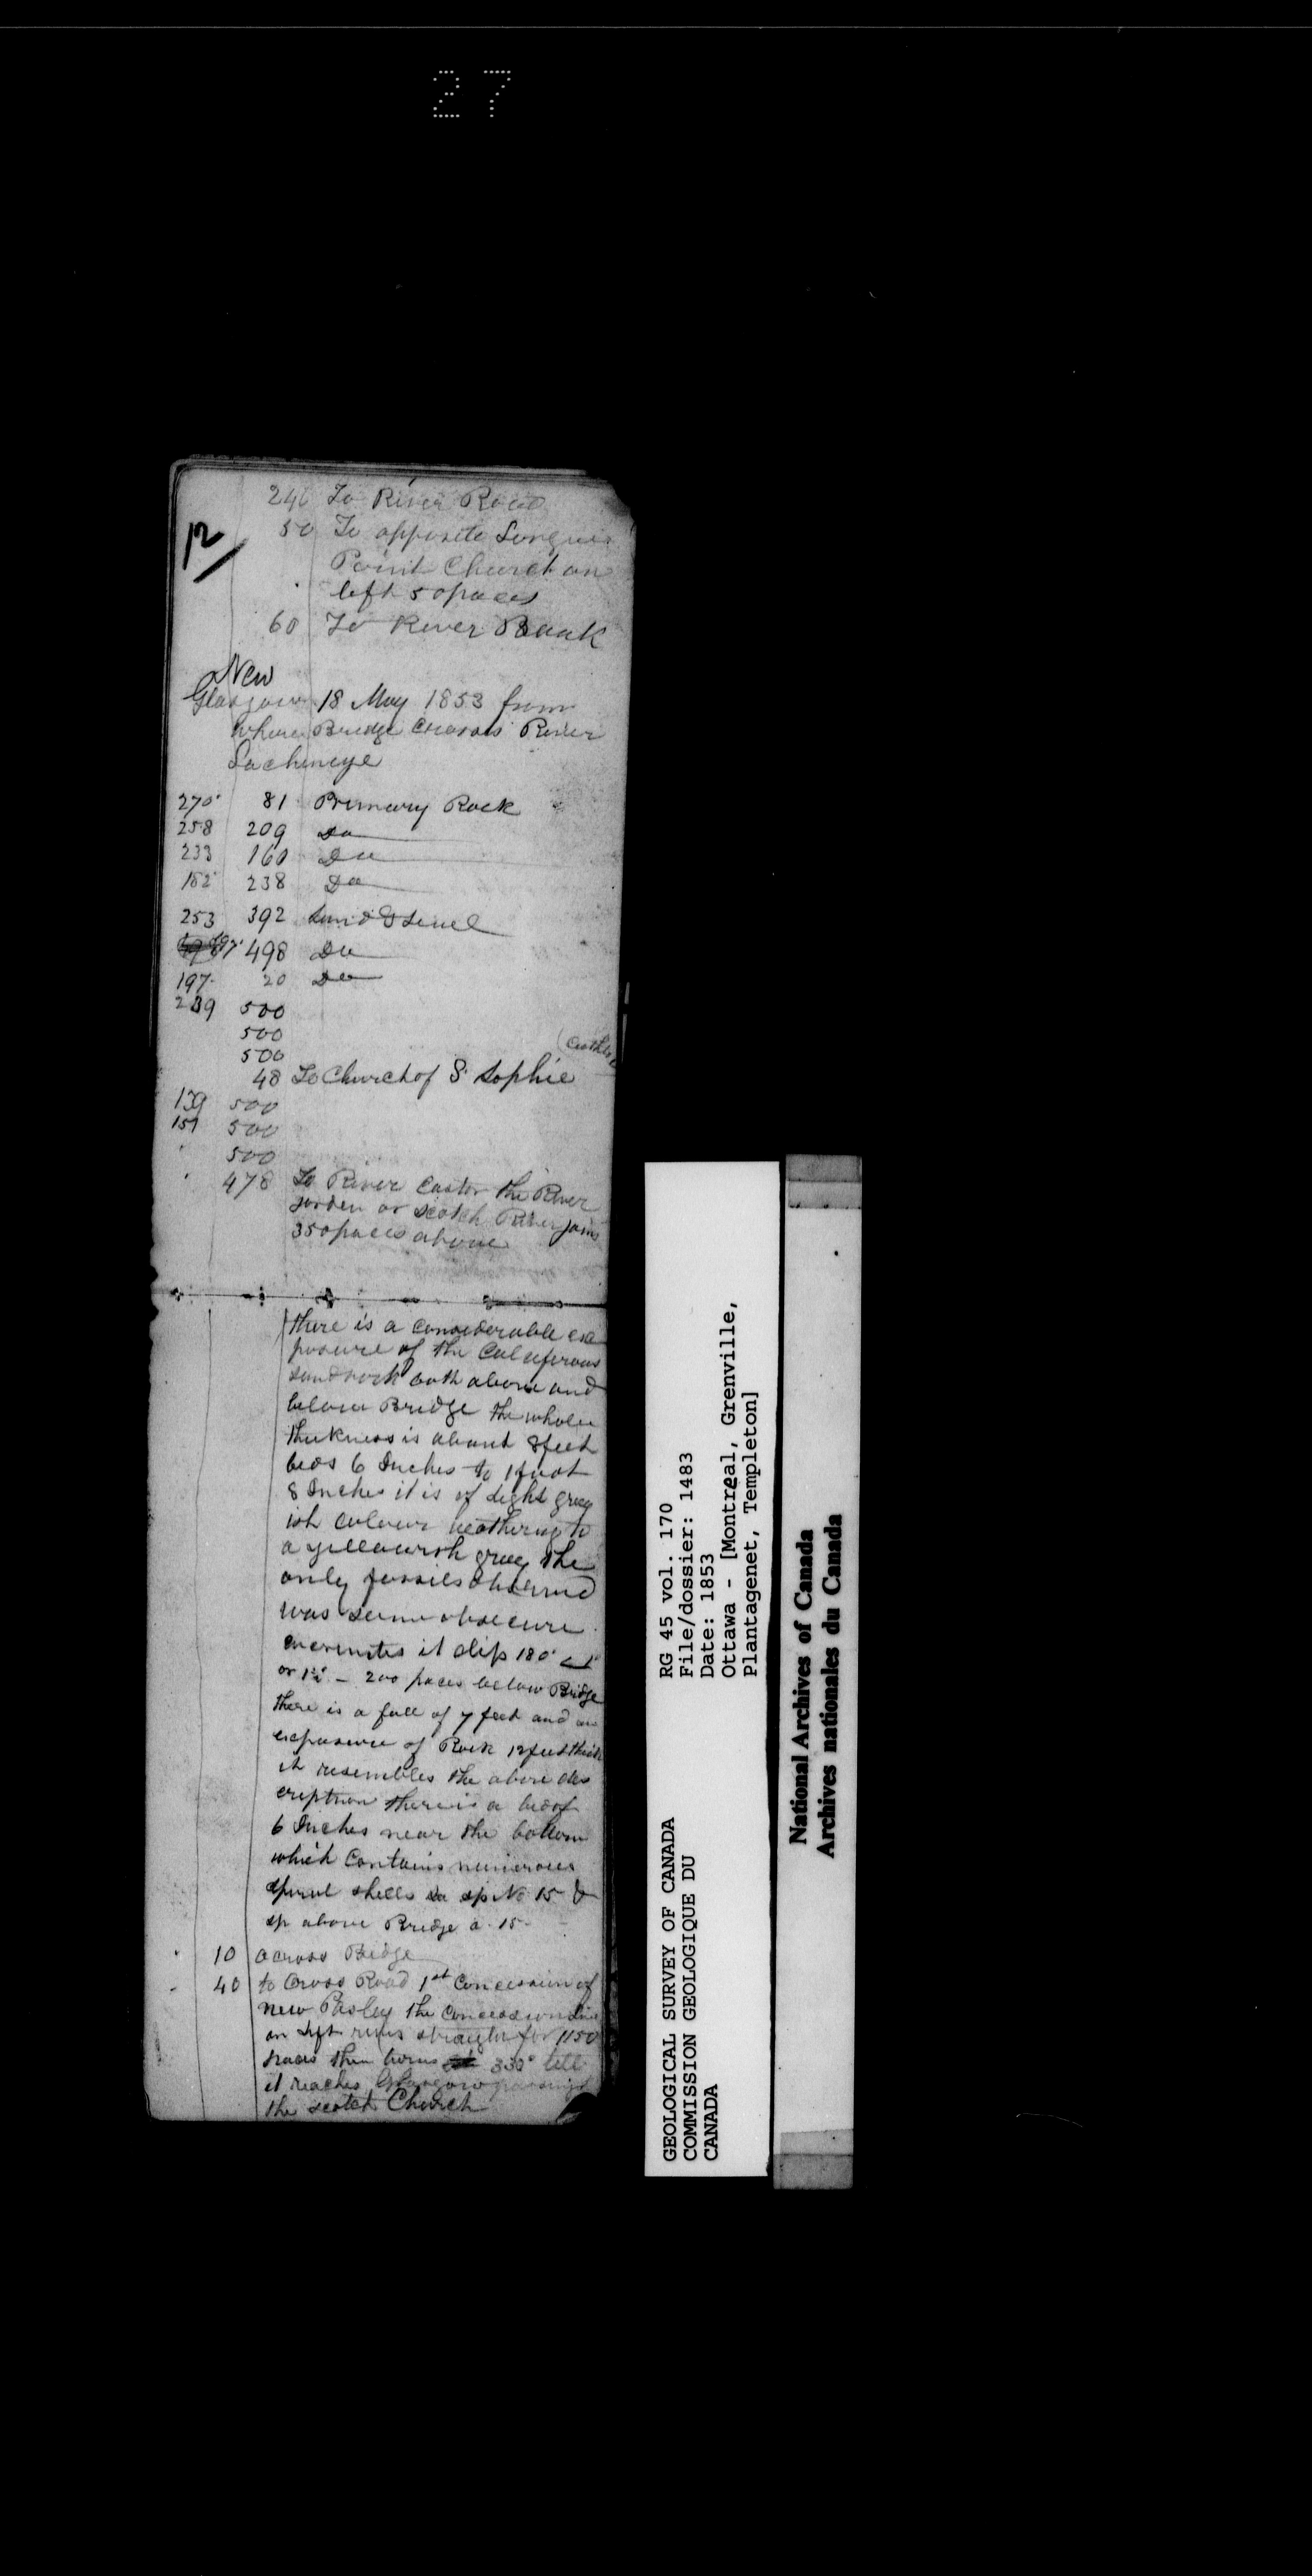 27
12
240 To River Road
50 To opposite Longue
Point Church on
left 50 paces
60 To River Bank
New
Glasgow 18 May 1853 from
where Bridge crosses River
Lacheneye
270° 81 Primary Rock
258 209 Do
233 160 Do
182° 238 Do
253 392 Sand & Level
498 Do
197 20 Do
239 500
500
500
48 To Church of St Sophie
139 500
157 500
500
478 To River Castor the River
Jorden or Scotch River joins
350 paces above
there is a considerable ex
posure of the Calciferous
sandrock both above and
below Bridge the whole
thickness is about 8 feet
beds 6 Inches to 1 foot
8 Inches it is of light grey
ish colour weathering to
a yellowish grey the
only fossils observed
was some obscure
encrinites it dips 180° < 1°
or 1½° - 200 paces below Bridge
there is a fall of 7 feet and an
exposure of Rock 12 feet thick
it resembles the above des
cription there is a bed of
6 Inches near the bottom
which contains numerous
spiral shells sp No 15 &
sp above Bridge a. 15
10 across Bridge
40 to Cross Road 1st Concession of
new Pasley the Concession line
on left runs straight for 1150
paces then turns 330° till
it reaches Glasgow passing
the scotch Church
GEOLOGICAL SURVEY OF CANADA
COMMISSION GEOLOGIQUE DU
CANADA
RG 45 vol. 170
File/dossier: 1483
Date: 1853
Ottawa - [Montreal, Grenville,
Plantagenet, Templeton]
National Archives of Canada
Archives nationales du Canada